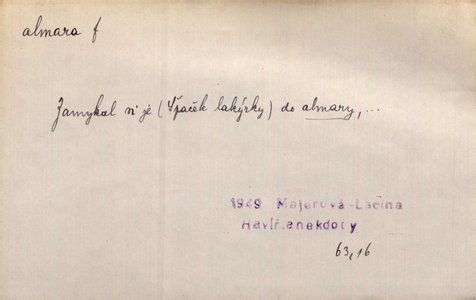 almara f
Zamykal si je (Špaček lakýrky) do almary, ...
1949 Majerová-Lačina
Havíř.anekdoty
63,16